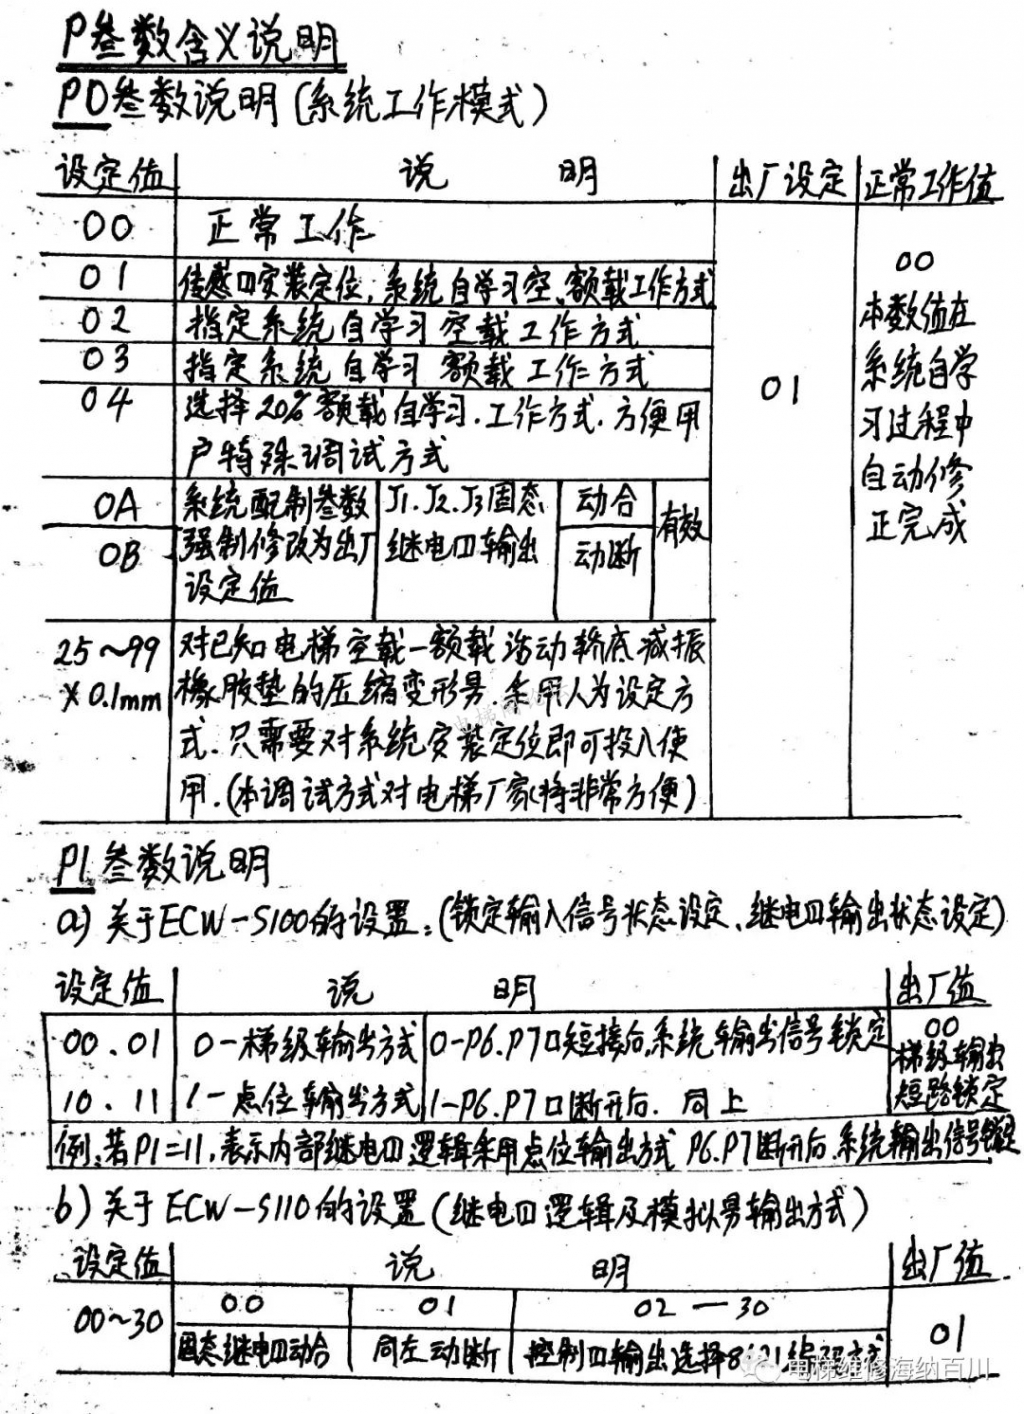 P叁数含义说明
P0叁数说明(系统工作模式)
设定值 说 明 出厂设定 正常工作值
00 正常工作
01 传感口安装定位,系统自学习空、额载工作方式
02 指定系统自学习空载工作方式
03 指定系统自学习额载工作方式
04 选择20%额载自学习.工作方式.方便用
户特殊调试方式
0A 系统配制叁数 J1.J2.J3固态 动合 有效
0B 强制修改为出厂 继电口输出 动断
设定值
25~99 对已知电梯空载—额载活动轿底减振
×0.1mm 橡胶垫的压缩变形量.采用人为设定方
式.只需要对系统安装定位即可投入使
用.(本调试方式对电梯厂家将非常方便)
01
00
本数值在
系统自学
习过程中
自动修
正完成
P1叁数说明
a)关于ECW-S100的设置:(锁定输入信号状态设定、继电口输出状态设定)
设定值 说 明 出厂值
00.01 0-梯级输出方式 0-P6.P7口短接后.系统输出信号锁定 00
梯级输出
10.11 1-点位输出方式 1-P6.P7口断开后.同上 短路锁定
例:若P1=11,表示内部继电口逻辑采用点位输出方式 P6.P7断开后,系统输出信号锁定
b)关于ECW-S110的设置(继电口逻辑及模拟量输出方式)
设定值 说 明 出厂值
00~30 00 01 02—30 01
固态继电口动合 同左动断 控制口输出选择8421编码方式
电梯维修海纳百川